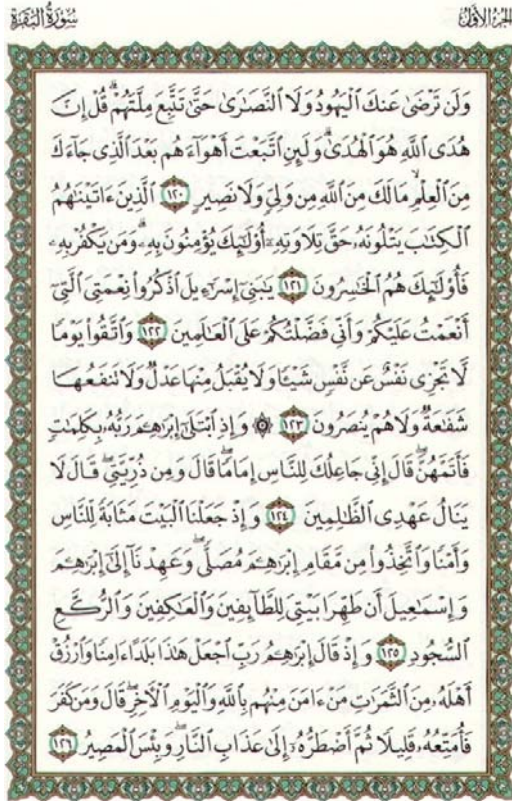 الجزء الأول
سورة البقرة
وَلَن تَرْضَىٰ عَنكَ ٱلْيَهُودُ وَلَا ٱلنَّصَٰرَىٰ حَتَّىٰ تَتَّبِعَ مِلَّتَهُمْ ۗ قُلْ إِنَّ
هُدَى ٱللَّهِ هُوَ ٱلْهُدَىٰ ۗ وَلَئِنِ ٱتَّبَعْتَ أَهْوَآءَهُم بَعْدَ ٱلَّذِى جَآءَكَ
مِنَ ٱلْعِلْمِ ۙ مَا لَكَ مِنَ ٱللَّهِ مِن وَلِىٍّ وَلَا نَصِيرٍ ١٢٠ ٱلَّذِينَ ءَاتَيْنَٰهُمُ
ٱلْكِتَٰبَ يَتْلُونَهُۥ حَقَّ تِلَاوَتِهِۦٓ أُو۟لَٰٓئِكَ يُؤْمِنُونَ بِهِۦ ۗ وَمَن يَكْفُرْ بِهِۦ
فَأُو۟لَٰٓئِكَ هُمُ ٱلْخَٰسِرُونَ ١٢١ يَٰبَنِىٓ إِسْرَٰٓءِيلَ ٱذْكُرُوا۟ نِعْمَتِىَ ٱلَّتِىٓ
أَنْعَمْتُ عَلَيْكُمْ وَأَنِّى فَضَّلْتُكُمْ عَلَى ٱلْعَٰلَمِينَ ١٢٢ وَٱتَّقُوا۟ يَوْمًا
لَّا تَجْزِى نَفْسٌ عَن نَّفْسٍ شَيْـًٔا وَلَا يُقْبَلُ مِنْهَا عَدْلٌ وَلَا تَنفَعُهَا
شَفَٰعَةٌ وَلَا هُمْ يُنصَرُونَ ١٢٣ ۞ وَإِذِ ٱبْتَلَىٰٓ إِبْرَٰهِـۧمَ رَبُّهُۥ بِكَلِمَٰتٍ
فَأَتَمَّهُنَّ ۖ قَالَ إِنِّى جَاعِلُكَ لِلنَّاسِ إِمَامًا ۖ قَالَ وَمِن ذُرِّيَّتِى ۖ قَالَ لَا
يَنَالُ عَهْدِى ٱلظَّٰلِمِينَ ١٢٤ وَإِذْ جَعَلْنَا ٱلْبَيْتَ مَثَابَةً لِّلنَّاسِ
وَأَمْنًا وَٱتَّخِذُوا۟ مِن مَّقَامِ إِبْرَٰهِـۧمَ مُصَلًّى ۖ وَعَهِدْنَآ إِلَىٰٓ إِبْرَٰهِـۧمَ
وَإِسْمَٰعِيلَ أَن طَهِّرَا بَيْتِىَ لِلطَّآئِفِينَ وَٱلْعَٰكِفِينَ وَٱلرُّكَّعِ
ٱلسُّجُودِ ١٢٥ وَإِذْ قَالَ إِبْرَٰهِـۧمُ رَبِّ ٱجْعَلْ هَٰذَا بَلَدًا ءَامِنًا وَٱرْزُقْ
أَهْلَهُۥ مِنَ ٱلثَّمَرَٰتِ مَنْ ءَامَنَ مِنْهُم بِٱللَّهِ وَٱلْيَوْمِ ٱلْـَٔاخِرِ ۖ قَالَ وَمَن كَفَرَ
فَأُمَتِّعُهُۥ قَلِيلًا ثُمَّ أَضْطَرُّهُۥٓ إِلَىٰ عَذَابِ ٱلنَّارِ ۖ وَبِئْسَ ٱلْمَصِيرُ ١٢٦